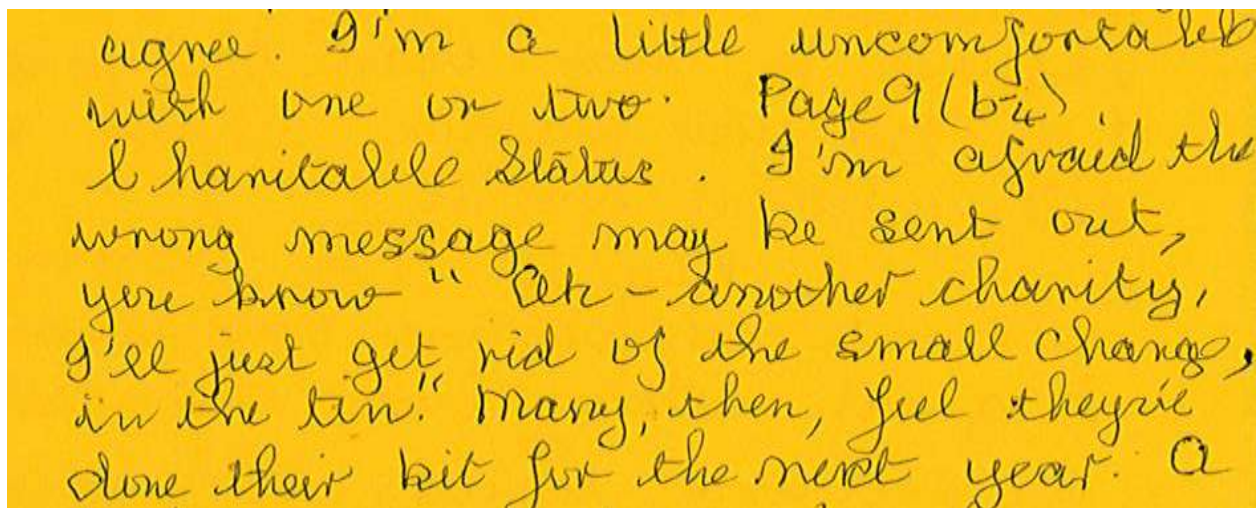 agree. I'm a little uncomfortable
with one or two. Page 9 (b-4).
Charitable Status. I'm afraid the
wrong message may be sent out,
you know "Ah - another charity,
I'll just get rid of the small change,
in the tin." Many, then, feel they've
done their bit for the next year. A